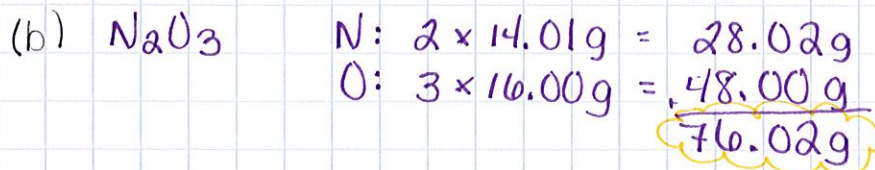 (b) N2O3 N: 2 × 14.01g = 28.02g
O: 3 × 16.00g = +48.00 g
76.02g